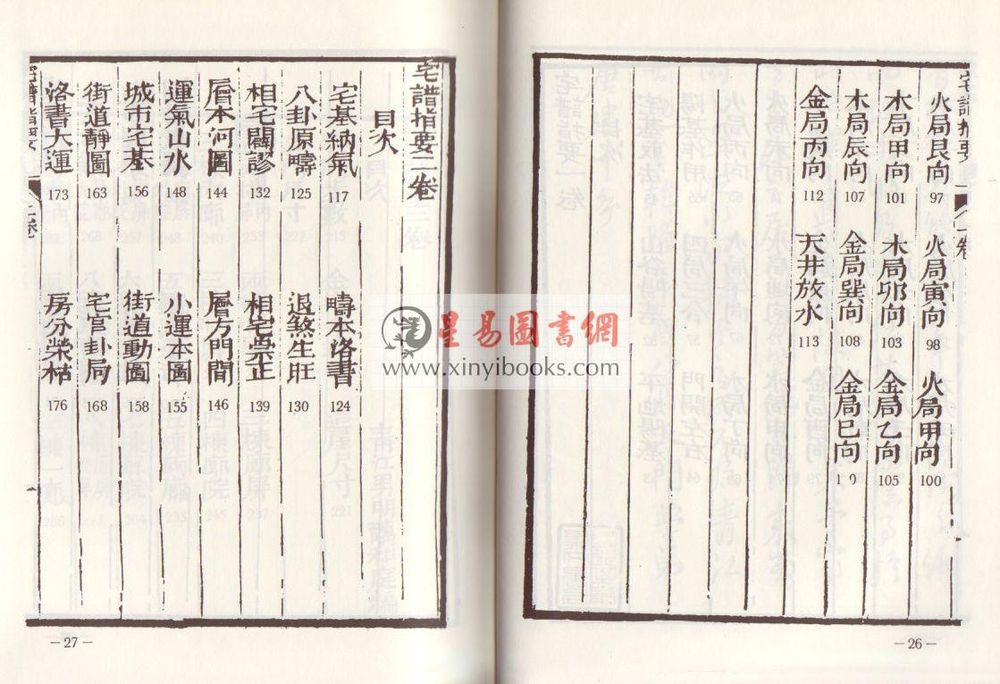 宅譜指要 一卷
火局艮向 97 火局寅向 98 火局甲向 100
木局甲向 101 木局卯向 103 金局乙向 105
木局辰向 107 金局巽向 108 金局巳向
金局丙向 112 天井放水 113
—26—
宅譜指要二卷
目次
宅基納氣 117 疇本洛書 124
八卦原疇 125 退煞生旺 130
相宅闢謬 132 相宅 正 139
層本河圖 144 層方門間 146
運氣山水 148 小運本圖 155
城市宅基 156 街道動圖 158
街道靜圖 163 宅宮卦局 168
洛書大運 173 房分榮枯 176
宅譜指要 二卷
—27—
星易圖書網
www.xinyibooks.com